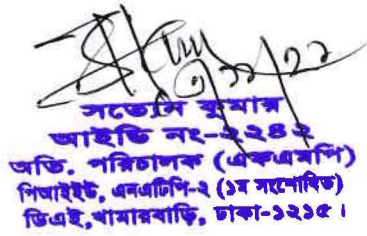 সত্যেন কুমার
আইডি নং-২২৪২
অতি. পরিচালক (এফএমপি)
পিআইইউ, এনএটিপি-২ (১ম সংশোধিত)
ডিএই,খামারবাড়ি, ঢাকা-১২১৫ ।